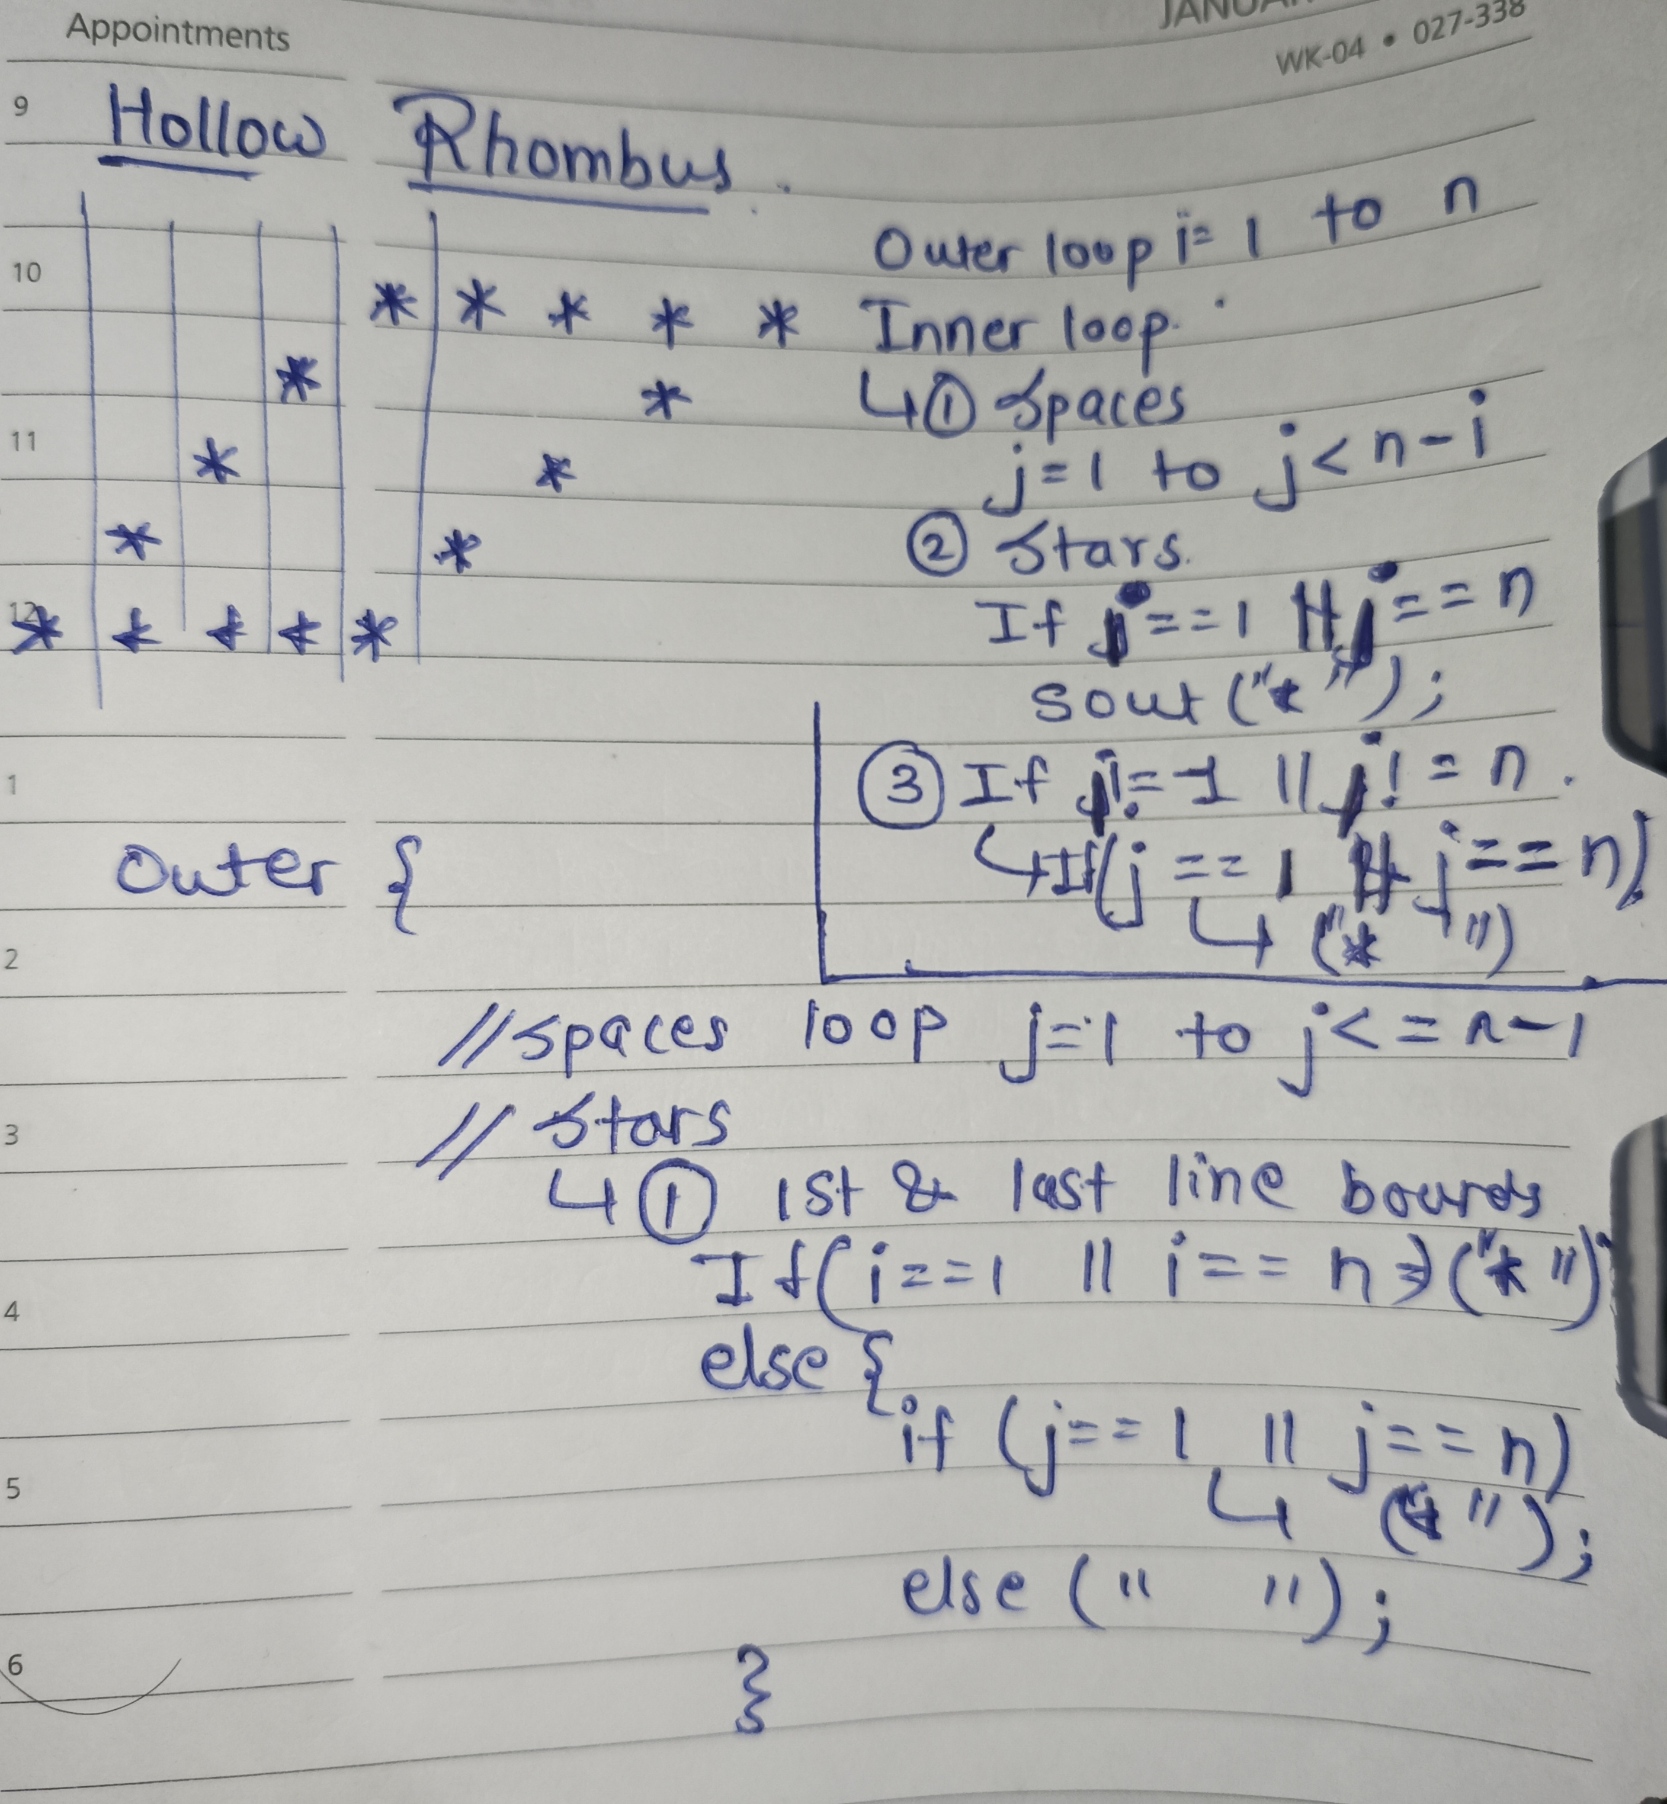 Appointments
JANUA
WK-04 • 027-338
9
Hollow Rhombus.
Outer loop i= 1 to n
10
* * * * *
Inner loop.
* *
↳ ① Spaces
11
* *
j=1 to j<n-i
* *
② Stars.
12
* * * * *
If j==1 || j==n
sout ("* ");
③ If j!=1 || j!=n.
1
↳If(j==1 || j==n)
Outer {
↳ ("* ")
2
//spaces loop j=1 to j<=n-1
// Stars
3
↳ ① 1st & last line bounds
If(i==1 || i==n) ("* ")
4
else {
if (j==1 || j==n)
↳ ("* ");
5
else (" ");
6
}